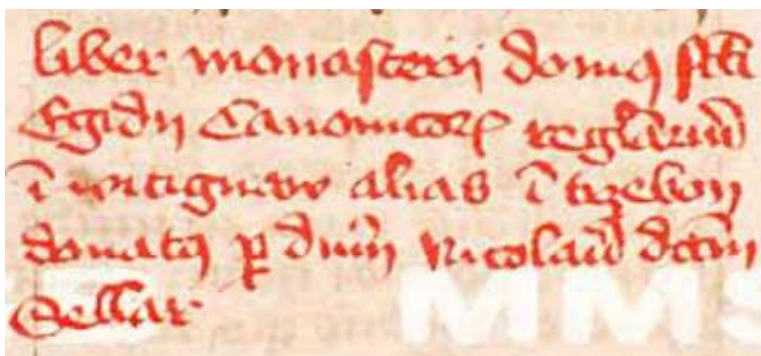 liber monasterij domꝯ sc̄ti
Egidij Canonicorꝝ regl̄ariū
ī witignaw alias ī trzebon
donatꝯ ꝑ dnū̄m Nicolaū dc̄m
Sellar
MMS